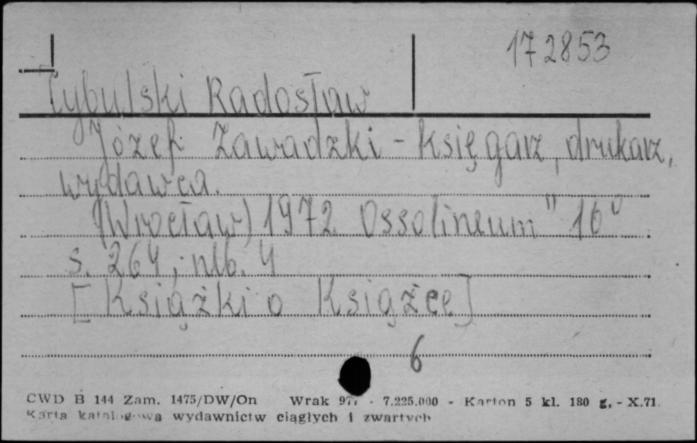 172853
Cybulski Radosław
Józef Zawadzki - księgarz, drukarz,
wydawca.
(Wrocław) 1972 Ossolineum" 16°
s. 264, nlb. 4
[Książki o Książce]
6
CWD B 144 Zam. 1475/DW/On Wrak - 7.225.000 - Karton 5 kl. 180 g. - X.71
Karta katalogowa wydawnictw ciągłych i zwartych